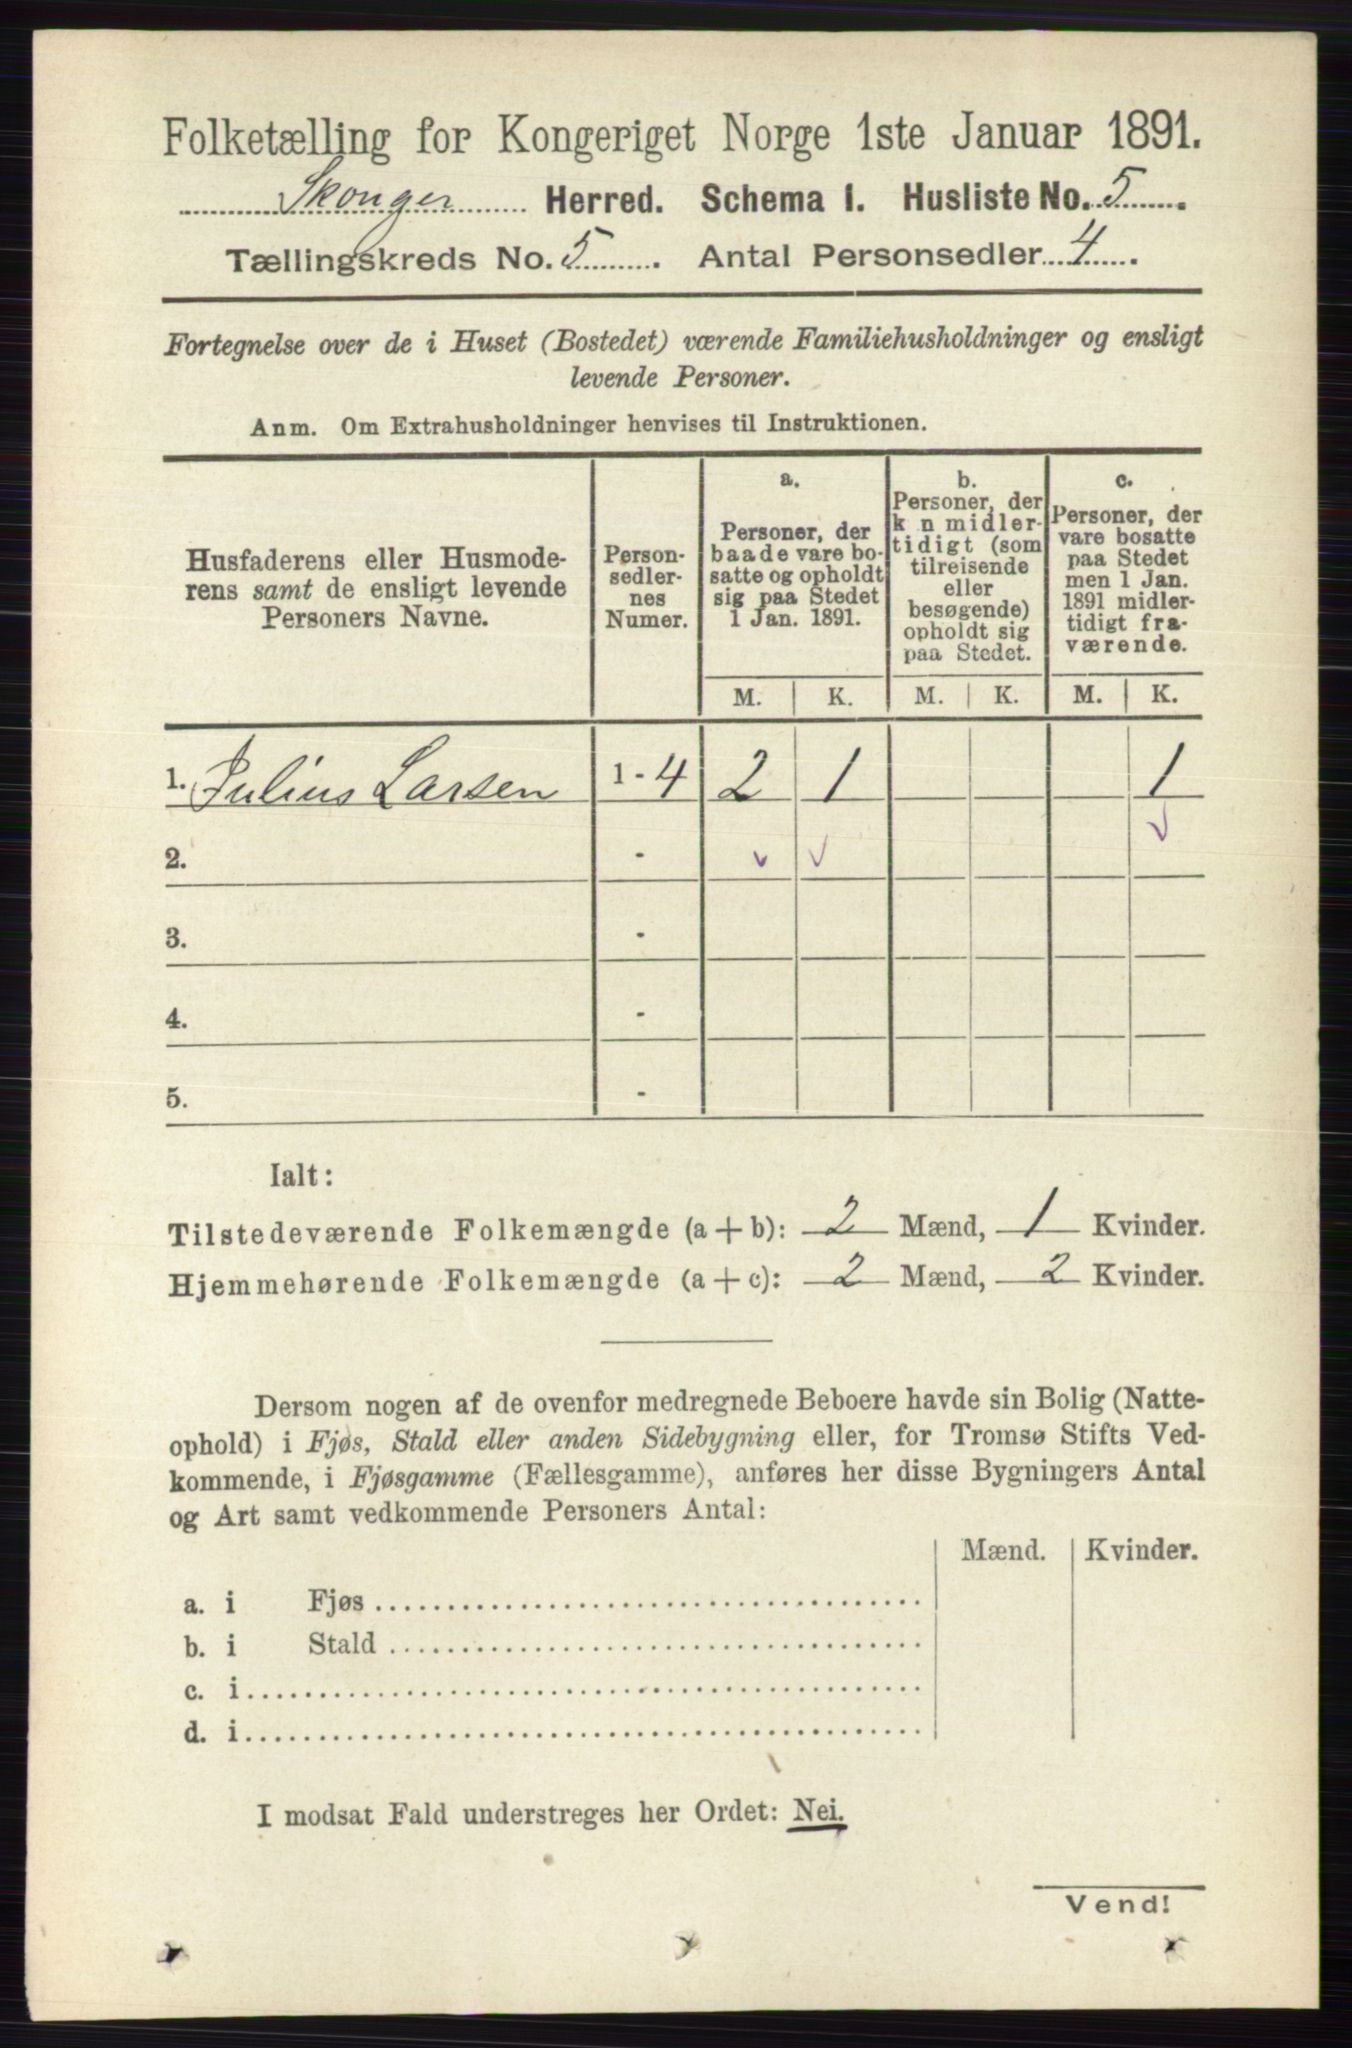 Folketælling for Kongeriget Norge 1ste Januar 1891.
Skouger Herred. Schema 1. Husliste No. 5
Tællingskreds No. 5. Antal Personsedler 4.
Fortegnelse over de i Huset (Bostedet) værende Familiehusholdninger og ensligt
levende Personer.
Anm. Om Extrahusholdninger henvises til Instruktionen.
Husfaderens eller Husmode-
rens samt de ensligt levende
Personers Navne.
Person-
sedler-
nes
Numer.
a.
Personer, der
baade vare bo-
satte og opholdt
sig paa Stedet
1 Jan. 1891.
b.
Personer, der
k n midler-
tidigt (som
tilreisende
eller
besøgende)
opholdt sig
paa Stedet.
c.
Personer, der
vare bosatte
paa Stedet
men 1 Jan.
1891 midler-
tidigt fra-
værende.
M. K. M. K. M. K.
1. Julius Larsen 1 - 4 2 1 1
2. -
3. -
4. -
5. -
Ialt:
Tilstedeværende Folkemængde (a + b): 2 Mænd, 1 Kvinder.
Hjemmehørende Folkemængde (a + c): 2 Mænd, 2 Kvinder.
Dersom nogen af de ovenfor medregnede Beboere havde sin Bolig (Natte-
ophold) i Fjøs, Stald eller anden Sidebygning eller, for Tromsø Stifts Ved-
kommende, i Fjøsgamme (Fællesgamme), anføres her disse Bygningers Antal
og Art samt vedkommende Personers Antal:
Mænd. Kvinder.
a. i Fjøs
b. i Stald
c. i
d. i
I modsat Fald understreges her Ordet: Nei.
Vend!